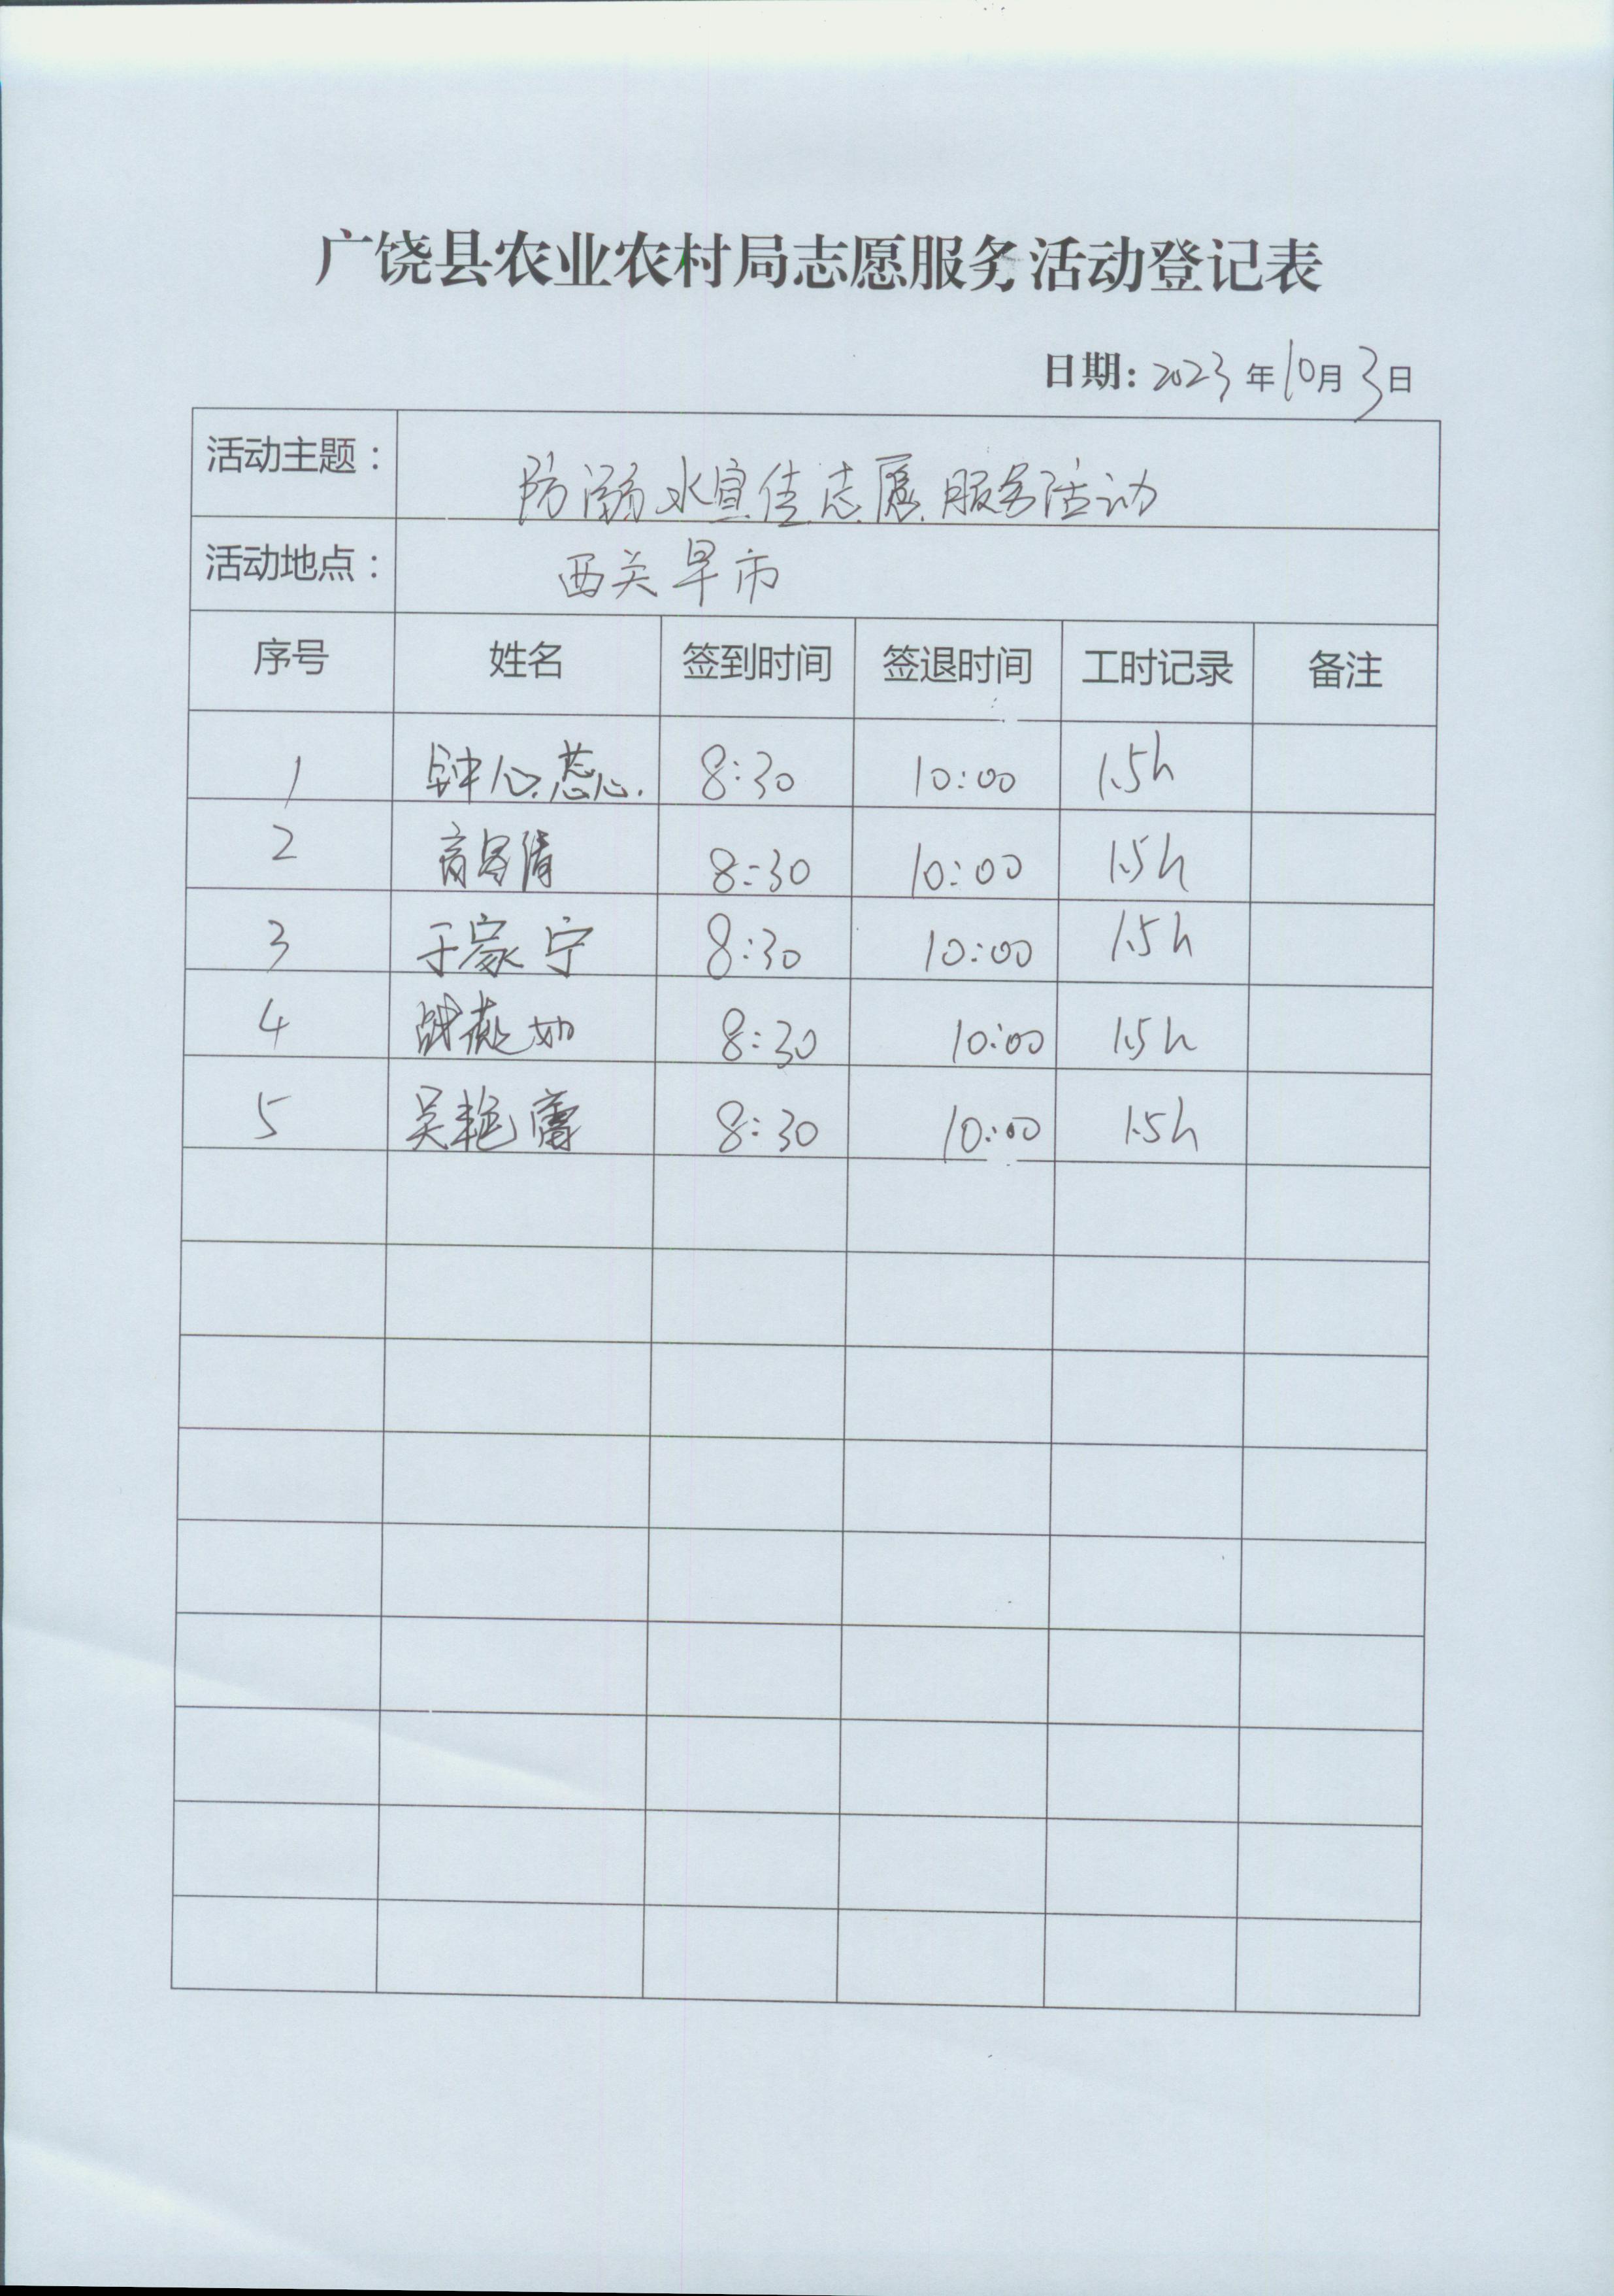 广饶县农业农村局志愿服务活动登记表
日期: 2023年10月3日
活动主题: 防溺水宣传志愿服务活动
活动地点: 西关早市
序号 姓名 签到时间 签退时间 工时记录 备注
1 钟心蕊 8:30 10:00 1.5h
2 8:30 10:00 1.5h
3 于家宁 8:30 10:00 1.5h
4 8:30 10:00 1.5h
5 吴艳 8:30 10:00 1.5h